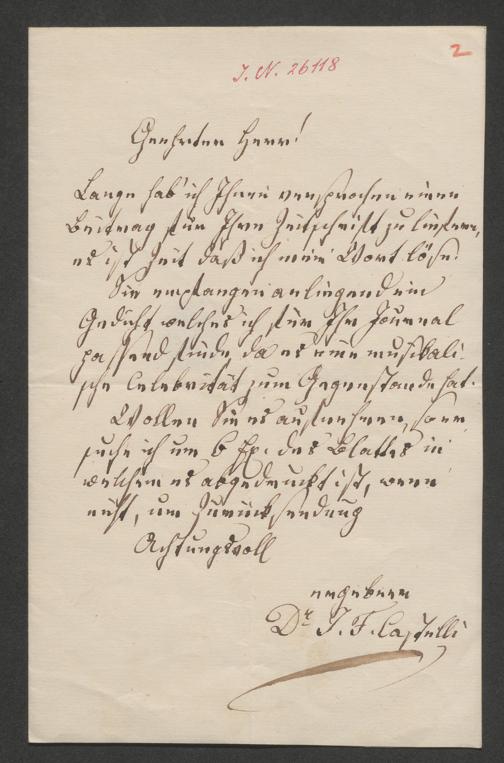 2
I. N. 26118
Geehrter Herr!
Lange hab' ich Ihnen versprochen einen
Beitrag für Ihre Zeitschrift zu liefern,
es ist Zeit daß ich mein Wort löse.
Sie empfangen anliegend ein
Gedicht welches ich für Ihr Journal
passend finde, da es eine musikali-
sche Celebrität zum Gegenstande hat.
Wollen Sie es aufnehmen, so er
suche ich um 6 Ex. des Blattes in
welchem es abgedruckt ist, wenn
nicht, um Zurücksendung
Achtungsvoll
ergebener
Dr. I. F. Castelli